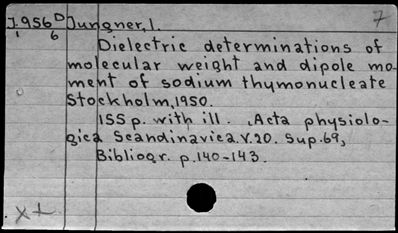 7
J.956 D Jungner, I.
1 6
Dielectric determinations of
molecular weight and dipole mo-
ment of sodium thymonucleate
Stockholm, 1950.
155 p. with ill. (Acta physiolo-
gica Scandinavica. V. 20. Sup. 69)
Bibliogr. p. 140-143.